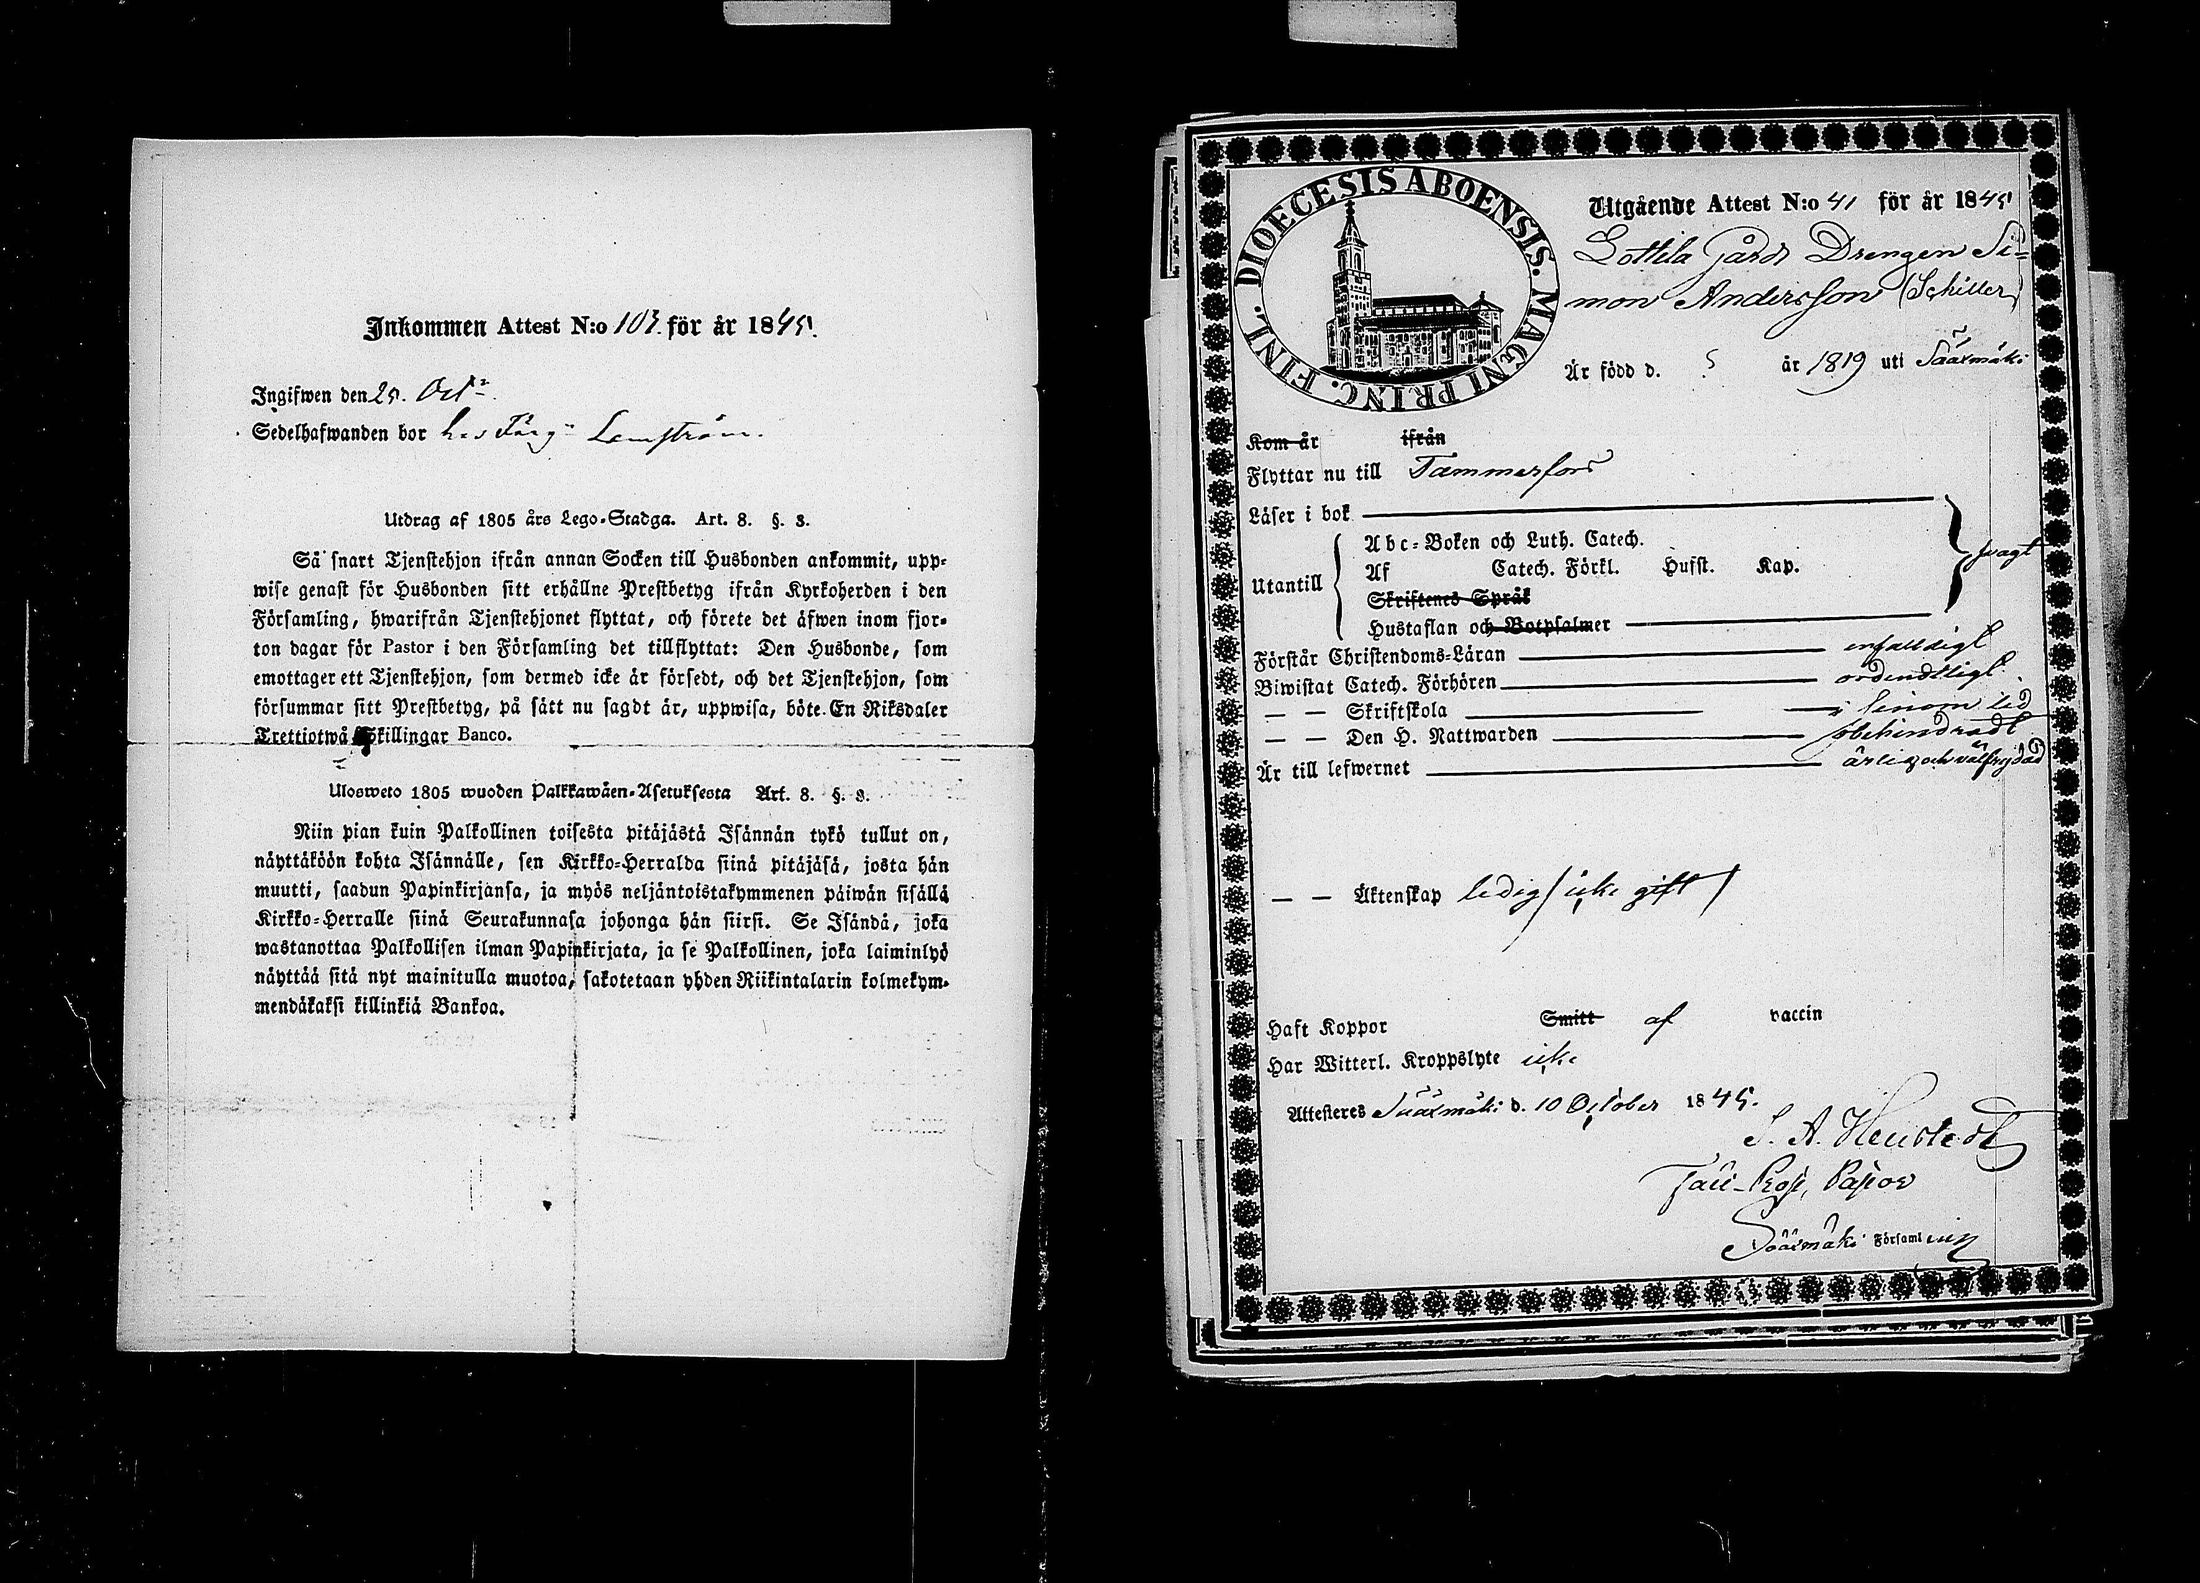 Inkommen Attest N:o 103. för år 1845.
Ingifwen den 25. Oct.
Sedelhafwanden bor hos Färg Lemström.
Utdrag af 1805 års Lego-Stadga. Art. 8. §. 3.
Så snart Tjenstehjon ifrån annan Socken till Husbonden ankommit, upp-
wise genast för Husbonden sitt erhållne Prestbetyg ifrån Kyrkoherden i den
Församling, hwarifrån Tjenstehjonet flyttat, och förete det äfwen inom fjor-
ton dagar för Pastor i den Församling det tillflyttat: Den Husbonde, som
emottager ett Tjenstehjon, som dermed icke är försedt, och det Tjenstehjon, som
försummar sitt Prestbetyg, på sätt nu sagdt är, uppwisa, böte En Riksdaler
Trettiotwå Skillingar Banco.
Ulosweto 1805 wuoden Palkkawäen-Asetuksesta Art. 8. §. 3.
Niin pian kuin Palkollinen toisesta pitäjästä Isännän tykö tullut on,
näyttäköön kohta Isännälle, sen Kirkko-Herralda siinä pitäjäsä, josta hän
muutti, saadun Papinkirjansa, ja myös neljäntoistakymmenen päiwän sisällä
Kirkko-Herralle siinä Seurakunnasa johonga hän siirsi. Se Isändä, joka
wastanottaa Palkollisen ilman Papinkirjata, ja se Palkollinen, joka laiminlyö
näyttää sitä nyt mainitulla muotoa, sakotetaan yhden Riikintalarin kolmekym-
mendäkaksi killinkiä Bankoa.
DIOECESIS ABOENSIS. MAGNI PRINC. FINL.
Utgående Attest N:o 41 för år 1845
Lottila Gårds Drengen Si-
mon Andersson (Schiller)
Är född d. år 1819 uti Sääxmäki
Kom år ifrån
Flyttar nu till Tammerfors
Läser i bok
Abc-Boken och Luth. Catech.
Utantill Af Catech. Förkl. Husst. Kap. svagt
Skriftenes Språk
Hustaflan och Botpsalmer
Förstår Christendoms-Läran enfaldigt
Biwistat Catech. Förhören ordendtligt
— — Skriftskola
— — Den H. Nattwarden obehindradt
Är till lefwernet ärlig och välfrejdad
— — Äktenskap ledig (icke gift)
Haft Koppor Smitt af vaccin
Har Witterl. Kroppslyte icke
Attesteres Sääxmäki d. 10 October 1845.
Prost, Pastor
Sääxmäki Församling